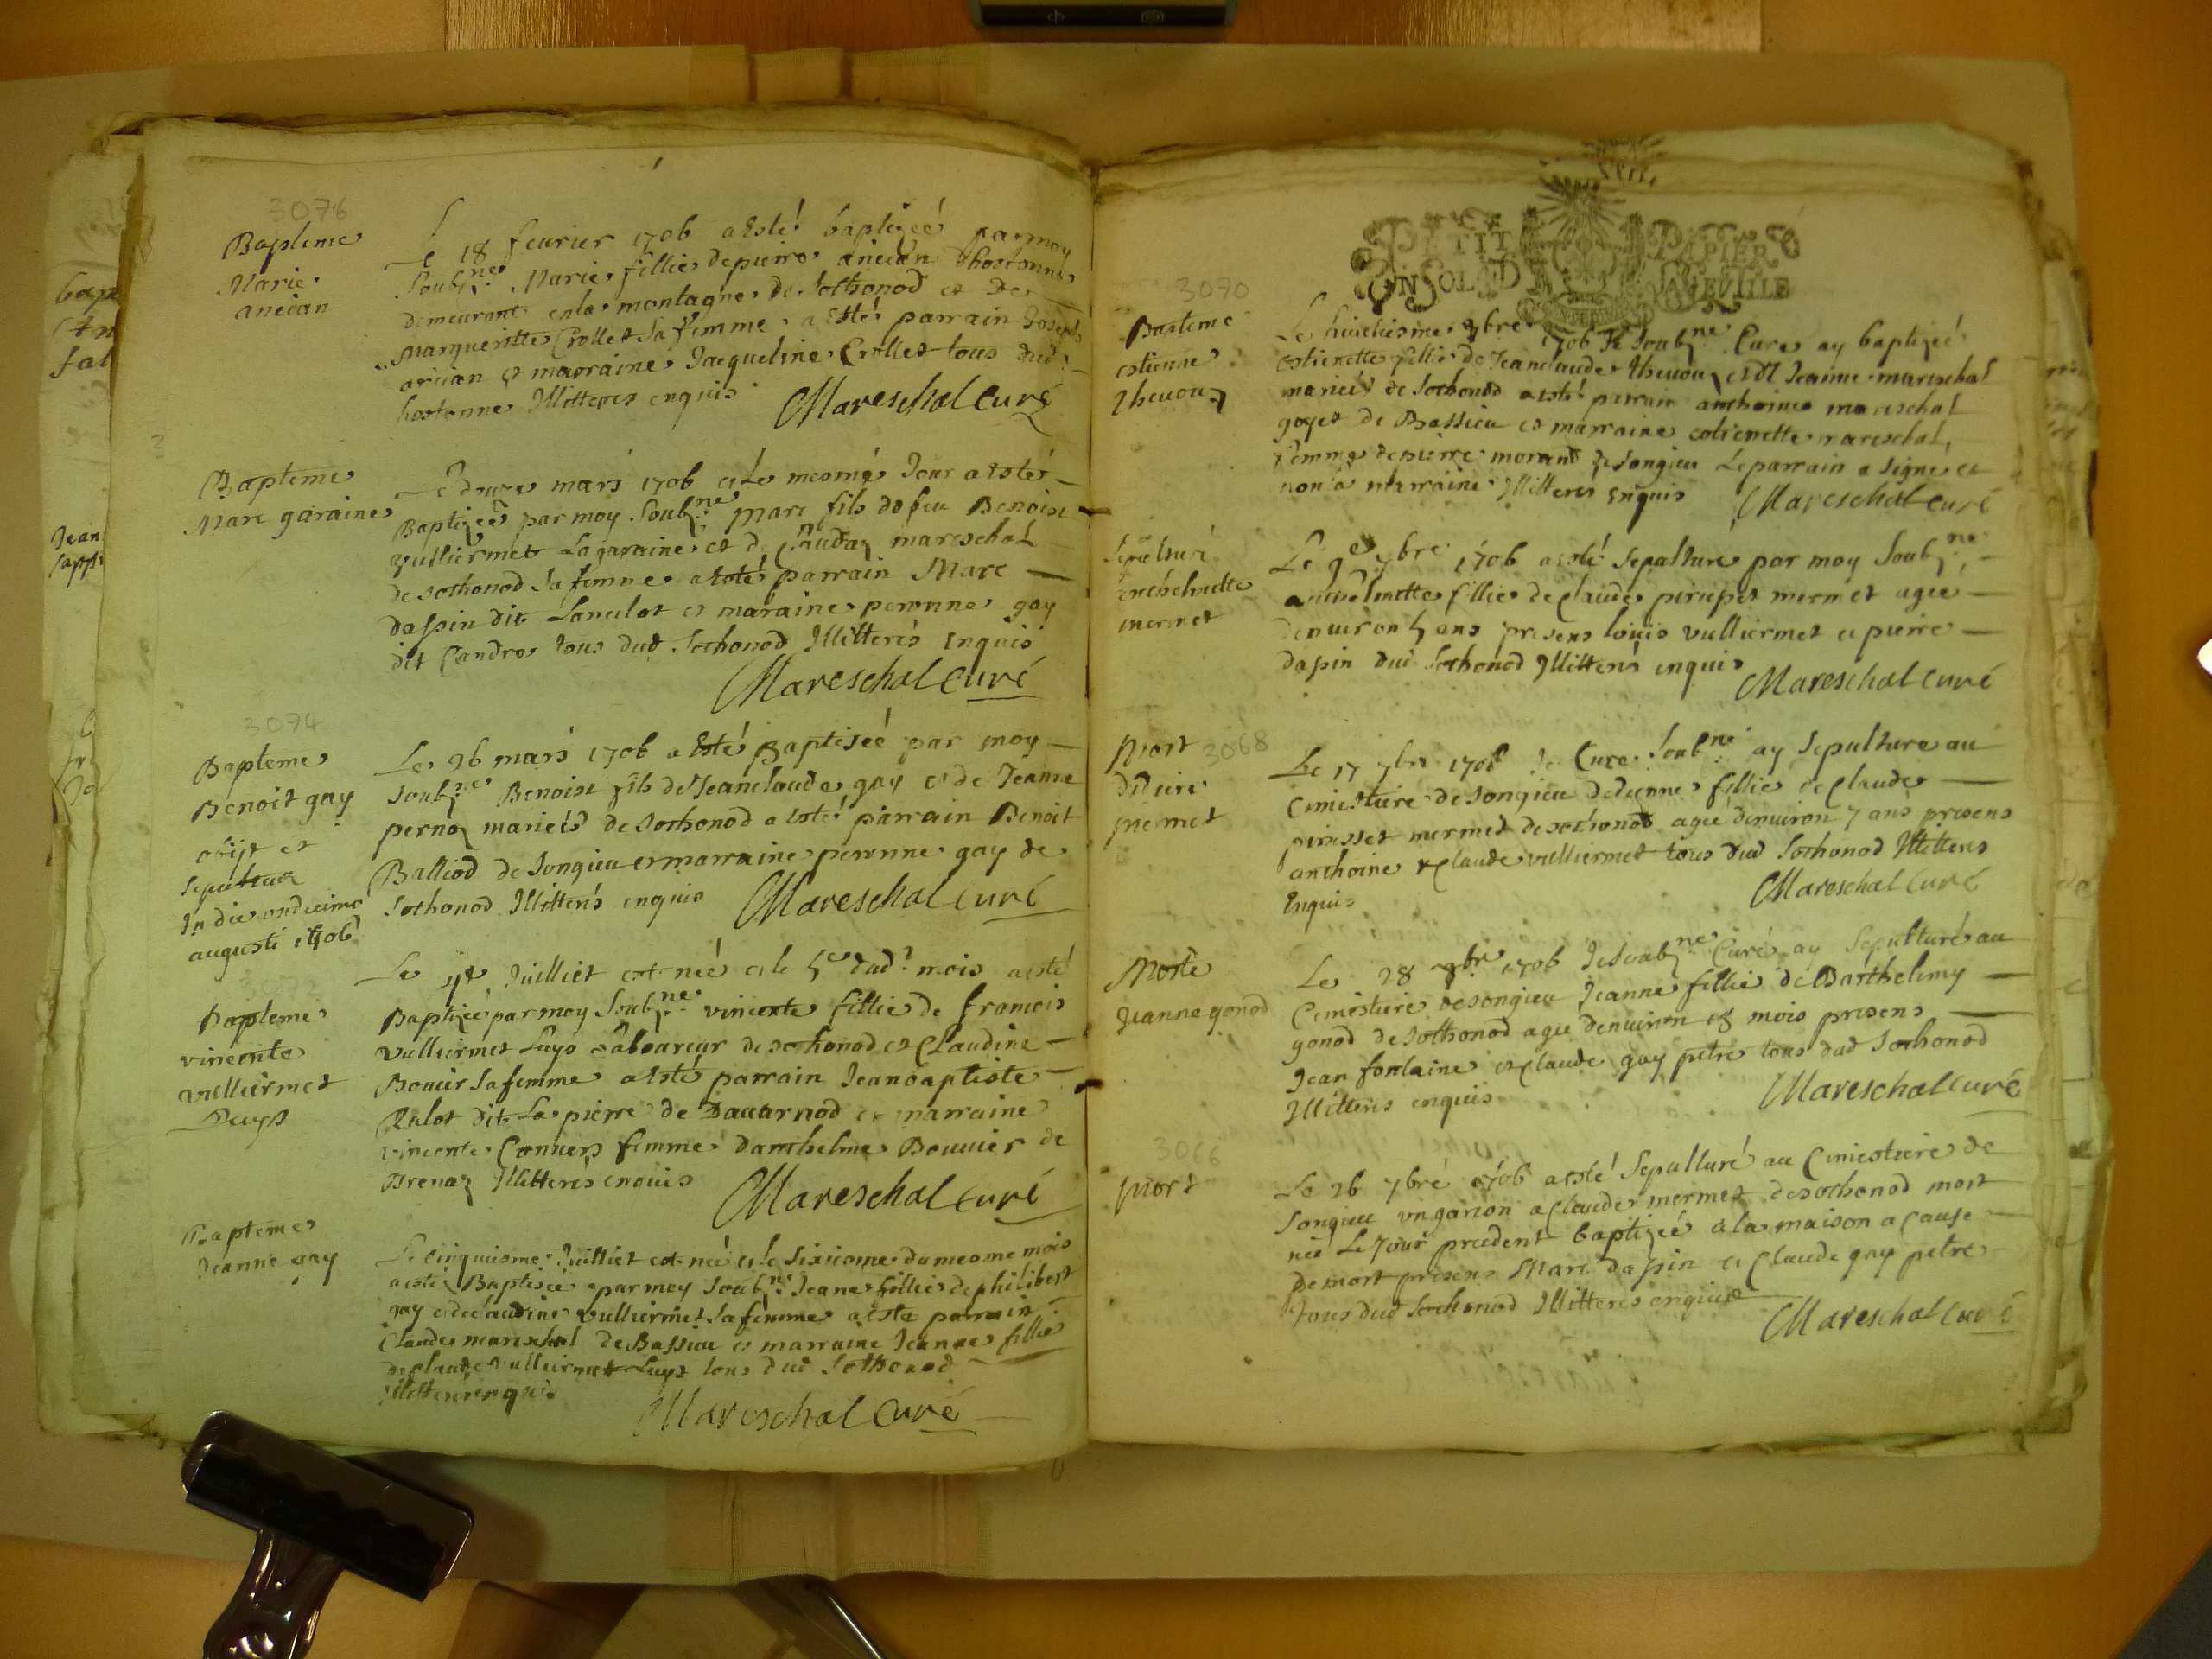 3076
Bapteme
Marie
anecian
Le 18 feurier 1706 a Esté baptizeé par moy
Soubz.ne Marie fillie de pierre anecian d'hostonne
demeurant en la montagne de Sothonod et de
Margueritte Crollet Sa femme a Esté parrain Joseph
anecian et marraine Jacqueline Crollet tous dud.
hostonne Illitteres enquis Mareschal Curé
Bapteme
Marc garaine
Le douze mars 1706 et Le mesme Jour a esté
Baptizeé par moy Soubz.ne Marc fils de feu Benoist
vulliermet La garaine et de Claudaz mareschal
de sothonod Sa femme a esté parrain Marc
dapin dit Lancelot et maraine peronne gay
dit Candre tous dud Sothonod Illitterés Enquis
Mareschal Curé
3074
Bapteme
Benoit gay
obijt et
Sepultus
In die ondecima
augusti 1706
Le 26 mars 1706 a Esté Baptiseé par moy
Soubz.ne Benoist fils de Jeanclaude gay et de Jeanne
pernaz marieés de sothonod a esté parrain Benoit
Balliod de Songieu et marraine peronne gay de
Sothonod Illitterés enquis Mareschal Curé
Bapteme
vincente
vulliermet
Luys
Le Juilliet est neé et le 5e dud. mois a esté
Baptizeé par moy Soubz.ne vincente fillie de francois
vulliermet Luys Laboureur de sothonod et Claudine
Bouuier Sa femme a esté parrain Jean baptiste
Rulot dit La pierre de Dauarnod et marraine
vincente Conuers femme d'anthelme Bouuier de
Brenaz Illitterés enquis Mareschal Curé
Bapteme
Jeanne gay
Le cinquiesme Juilliet est neé et le Sixiesme du mesme mois
a esté Baptiseé par moy Soubz.ne Jeane fillie de philibert
gay et de claudine vulliermet Sa femme a esté parrain
Claude mareschal de Bassieu et marraine Jeanne fillie
de Claude vulliermet Luys tous dud Sothonod
Illitterés enquis
Mareschal Curé
PETIT PAPIER
3070
Bapteme
estienne
Theuouz
Le huictiesme 7bre 1706 Je Soubz.ne Curé ay baptizeé
estienette fillie de Jeanclaude Theuouz et de Jeanne mareschal
marieés de Sothonod a esté parrain anthoine mareschal
goyet de Bassieu et marraine estienette mareschal
femme de pierre morand de Songieu Le parrain a Signé et
non la marraine Illitteres Enquis Mareschal Curé
Sepulturé
mermet
Le 9e 7bre 1706 a esté Sepulturé par moy Soubz.ne
fillie de Claude mermet ageé
d'enuiron 5 ans presens Louis vulliermet et pierre
dapin dud Sothonod Illitterés enquis
Mareschal Curé
3068
Mort
mermet
Le 17 7bre 1706 Je Curé Soubz.ne ay Sepulturé au
Cimestiere de Songieu fillie de Claude
mermet de sothonod ageé d'enuiron 7 ans presens
anthoine et Claude vulliermet tous dud Sothonod Illitteres
Enquis
Mareschal Curé
Morte
Jeanne gonod
Le 28 7bre 1706 Je Soubz.ne Curé ay Sepulturé au
Cimestiere de songieu Jeanne fillie de Barthelemy
gonod de Sothonod ageé d'enuiron 18 mois presens
Jean fontaine et Claude gay petre tous dud Sothonod
Illitterés enquis
Mareschal Curé
3066
Mort
Le 26 7bre 1706 a esté Sepulturé au Cimestiere de
Songieu un garson a Claude mermet de sothonod mort
neé Le Jour precedent baptizeé a la maison a cause
de mort presens Marc dapin et Claude gay petre
tous dud Sothonod Illitterés enquis
Mareschal Curé